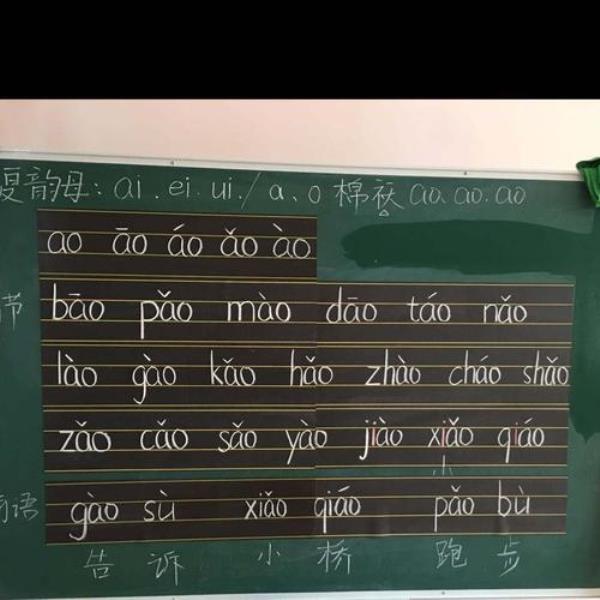 复韵母: ai . ei. ui. / a、o 棉袄 ao. ao. ao
ao āo áo ǎo ào
节 bāo pǎo mào dāo táo nǎo
lào gào kǎo hǎo zhào cháo shǎo
zǎo cǎo sǎo yào jiào xiǎo qiáo
小
词语 gào sù xiǎo qiáo pǎo bù
告 诉 小 桥 跑 步